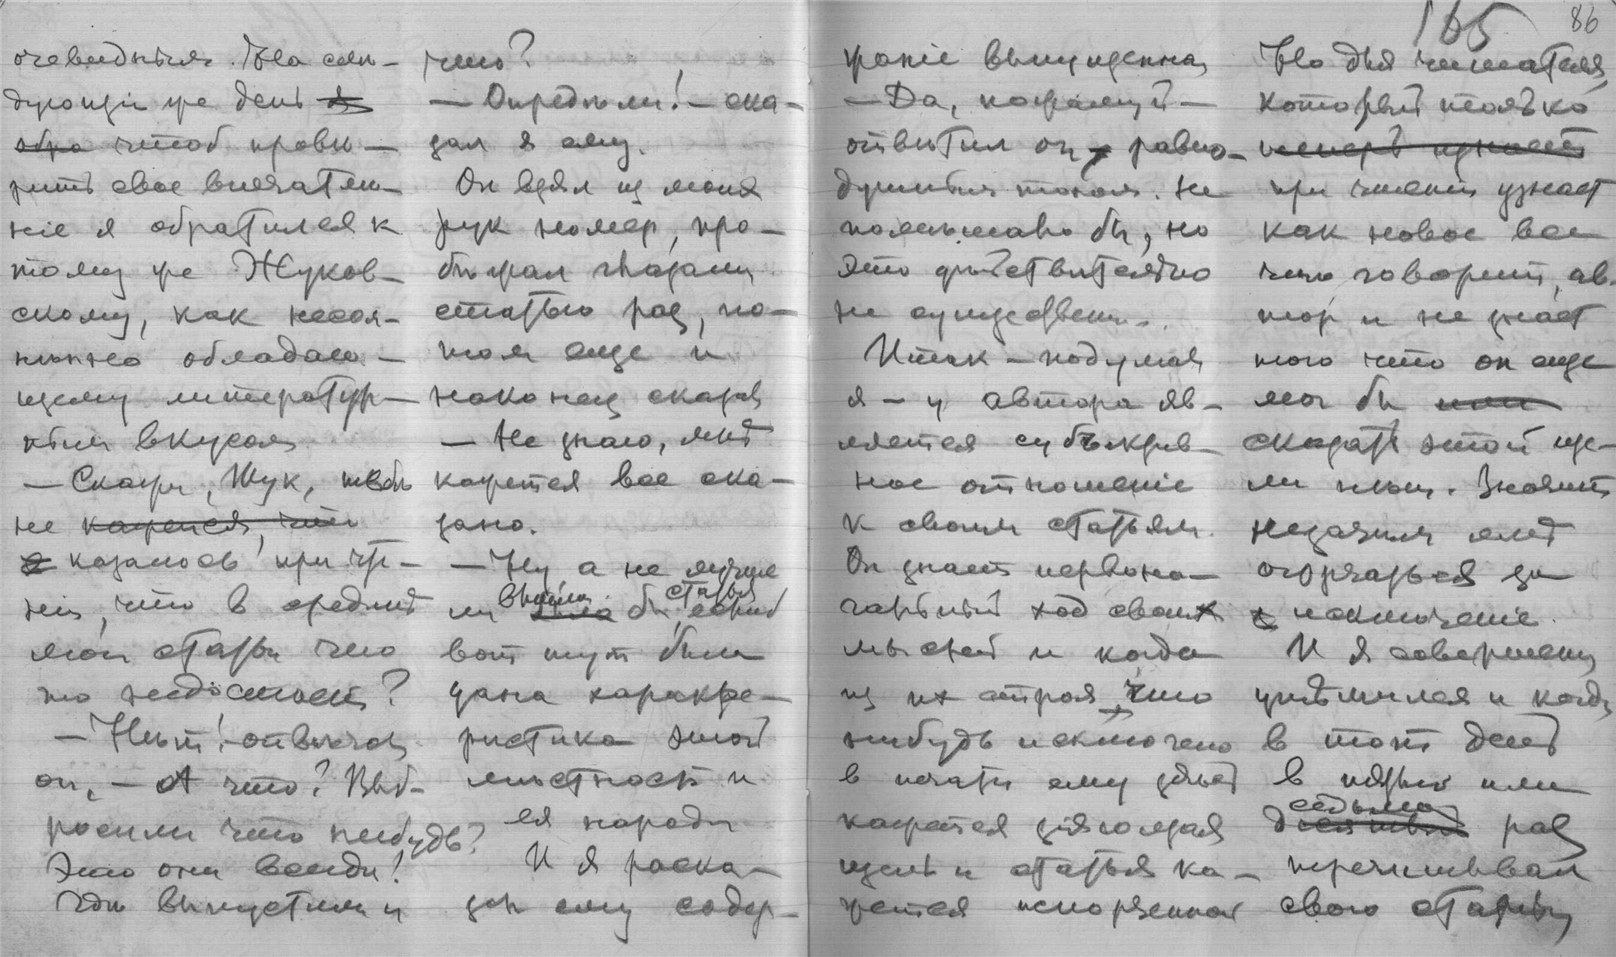 165
86
очевидных. На слѣ-
дующій же день я
чтоб провѣ-
рить свое впечатлѣ-
ніе я обратился к
тому же Жуков-
скому, как несом-
нѣнно обладаю-
щему литератур-
ным вкусом
— Скажи, Жук, тебѣ
не кажется, что
казалось при чте-
ніи, что в средней
моей статьи чего
то недостает?
— Нѣт! — отвѣчал
он, — А что? Выб-
росили что нибудь?
Это они всегда!
Гдѣ выпустили и
что?
— Опредѣли! — ска-
зал я ему.
Он взял из моих
рук номер, про-
бѣжал глазами
статью раз, по-
том еще и
наконец сказал
— Не знаю, мнѣ
кажется все ска-
зано.
— Ну а не лучше
ли вышла бы статья, если б
вот тут была
дана характе-
ристика этой
мѣстности и
ея народа
И я расска-
зал ему содер-
жаніе выпущеннаго
— Да, пожалуй —
отвѣтил он равно-
душным тоном. Не
помѣшало бы, но
это дѣйствительно
не существенно..
Итак — подумал
я — у автора яв-
ляется субъектив-
ное отношеніе
к своим статьям.
Он знает первона-
чальный ход своих
мыслей и когда
из их строя что
нибудь исключено
в печати ему здѣсь
кажется зіяющая
щель и статья ка-
жется испорченной
Но для читателя,
который только
теперь узнает
при чтеніи узнает
как новое все
что говорит ав-
тор и не знает
того что он еще
мог бы
сказать этой ще-
ли нѣт. Значит
незачѣм мнѣ
огорчаться за
исключеніе.
И я совершенно
утѣшился и когда
в тот день
в пятый или
седьмой раз
перечитывал
свою статью,